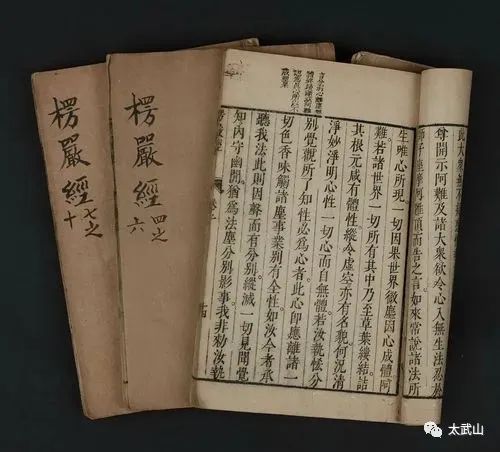 尊開示阿難及諸大衆欲令心入無生法忍於
師子座摩阿難頂而告之言如來常說諸法所
生唯心所現一切因果世界微塵因心成體阿
難若諸世界一切所有其中乃至草葉縷結詰
其根元咸有體性縱令虛空亦有名貌何況清
淨妙淨明心性一切心而自無體若汝執恡分
別覺觀所了知性必爲心者此心即應離諸一
切色香味觸諸塵事業別有全性如汝今者承
聽我法此則因聲而有分別縱滅一切見聞覺
知內守幽閒猶爲法塵分別影事我非勑汝執
楞嚴經
四之六
楞嚴經
七之十
太武山